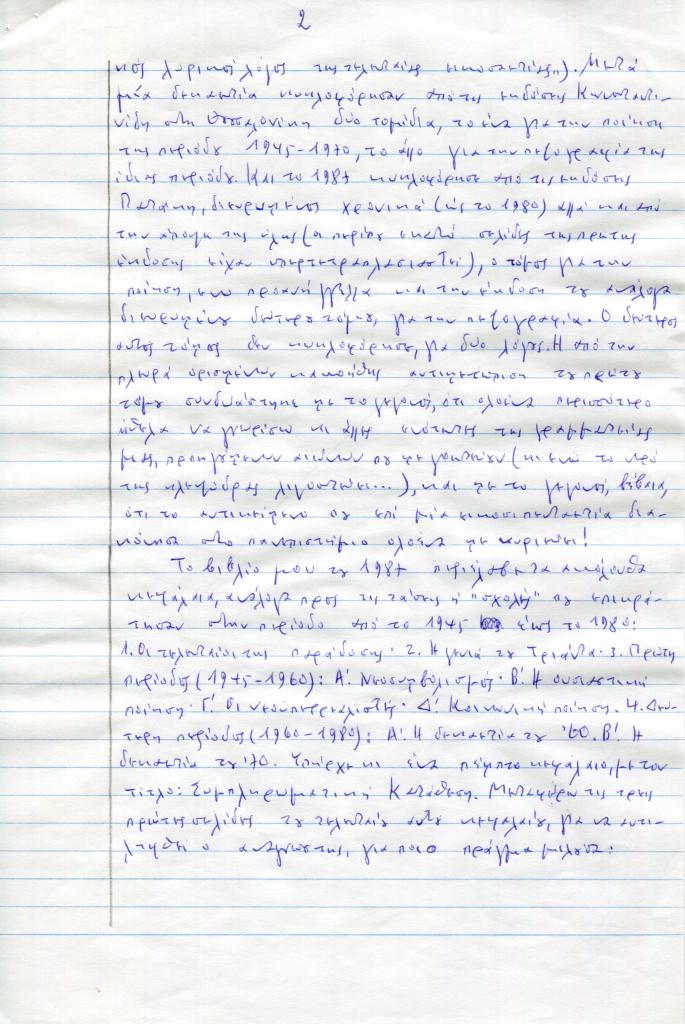 2
κός λυρικός λόγος της τελευταίας εικοσαετίας»). Μετά
μία δεκαετία κυκλοφόρησαν από τις εκδόσεις Κωνσταντι-
νίδη στη Θεσσαλονίκη δύο τομίδια, το ένα για την ποίηση
της περιόδου 1945-1970, το άλλο για την πεζογραφία της
ίδιας περιόδου. Και το 1987 κυκλοφόρησε από τις εκδόσεις
Πατάκη, διευρυμένος χρονικά (ώς το 1980) αλλά και από
την άποψη της ύλης (οι περίπου εκατό σελίδες της πρώτης
έκδοσης είχαν υπερτετραπλασιαστεί), ο τόμος για την
ποίηση, ενώ προανήγγειλα και την έκδοση του ανάλογα
διευρυμένου δεύτερου τόμου, για την πεζογραφία. Ο δεύτερος
αυτός τόμος δεν κυκλοφόρησε, για δύο λόγους. Η από την
πλευρά ορισμένων κακοήθης αντιμετώπιση του πρώτου
τόμου συνδυάστηκε με το γεγονός, ότι ολοένα περισσότερο
ήθελα να γνωρίσω κι άλλες ενότητες της γραμματείας
μας, προηγούμενων αιώνων που με γοητεύουν (κι ενώ το νερό
της κλεψύδρας λιγοστεύει...), και με το γεγονός, βέβαια,
ότι το αντικείμενο που επί μία εικοσιπενταετία δια-
κόνησα στο πανεπιστήμιο ολοένα με κυριεύει!
Το βιβλίο μου του 1987 περιέλαβε τα ακόλουθα
κεφάλαια, ανάλογα προς τις τάσεις ή "σχολές" που επικρά-
τησαν στην περίοδο από το 1945 έως το 1980:
1. Οι τελευταίοι της παράδοσης· 2. Η γενιά του Τριάντα· 3. Πρώτη
περίοδος (1945-1960): Α΄. Νεοσυμβολισμός· Β΄. Η ουσιαστική
ποίηση· Γ΄. Οι νεοϋπερρεαλιστές· Δ΄. Κοινωνική ποίηση. 4. Δεύ-
τερη περίοδος (1960-1980): Α΄. Η δεκαετία του '60. Β΄. Η
δεκαετία του '70. Υπάρχει κι ένα πέμπτο κεφάλαιο, με τον
τίτλο: Συμπληρωματική Κατάθεση. Μεταφέρω τις τρεις
πρώτες σελίδες του τελευταίου αυτού κεφαλαίου, για να αντι-
ληφθεί ο αναγνώστης, για ποιο πράγμα μιλούσα: